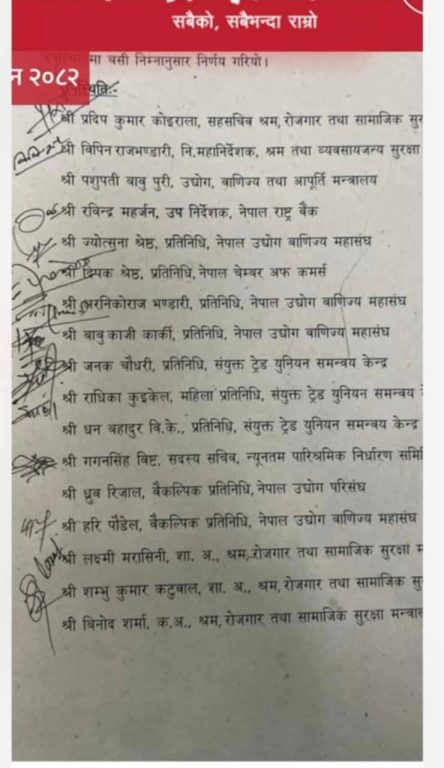 सबैको, सबैभन्दा राम्रो
बसी निम्नानुसार निर्णय गरियो।
न २०८२
श्री प्रदिप कुमार कोइराला, सहसचिव श्रम, रोजगार तथा सामाजिक सुर
श्री विपिन राजभण्डारी, नि.महानिर्देशक, श्रम तथा व्यवसायजन्य सुरक्षा
श्री पशुपती बाबु पुरी, उद्योग, वाणिज्य तथा आपूर्ति मन्त्रालय
श्री रविन्द्र महर्जन, उप निर्देशक, नेपाल राष्ट्र बैंक
श्री ज्योत्सना श्रेष्ठ, प्रतिनिधि, नेपाल उद्योग वाणिज्य महासंघ
श्री दिपक श्रेष्ठ, प्रतिनिधि, नेपाल चेम्बर अफ कमर्स
श्री अरनिकोराज भण्डारी, प्रतिनिधि, नेपाल उद्योग वाणिज्य महासंघ
श्री बाबु काजी कार्की, प्रतिनिधि, नेपाल उद्योग वाणिज्य महासंघ
श्री जनक चौधरी, प्रतिनिधि, संयुक्त ट्रेड युनियन समन्वय केन्द्र
श्री राधिका कुइकेल, महिला प्रतिनिधि, संयुक्त ट्रेड युनियन समन्वय
श्री धन बहादुर वि.के., प्रतिनिधि, संयुक्त ट्रेड युनियन समन्वय केन्द्र
श्री गगनसिंह विष्ट, सदस्य सचिव, न्यूनतम पारिश्रमिक निर्धारण समिति
श्री ध्रुव रिजाल, वैकल्पिक प्रतिनिधि, नेपाल उद्योग परिसंघ
श्री हरि पौडेल, वैकल्पिक प्रतिनिधि, नेपाल उद्योग वाणिज्य महासंघ
श्री लक्ष्मी मरासिनी, शा. अ., श्रम, रोजगार तथा सामाजिक सुरक्षा म
श्री शम्भु कुमार कटुवाल, शा. अ., श्रम, रोजगार तथा सामाजिक सु
श्री बिनोद शर्मा, क.अ., श्रम, रोजगार तथा सामाजिक सुरक्षा मन्त्राल